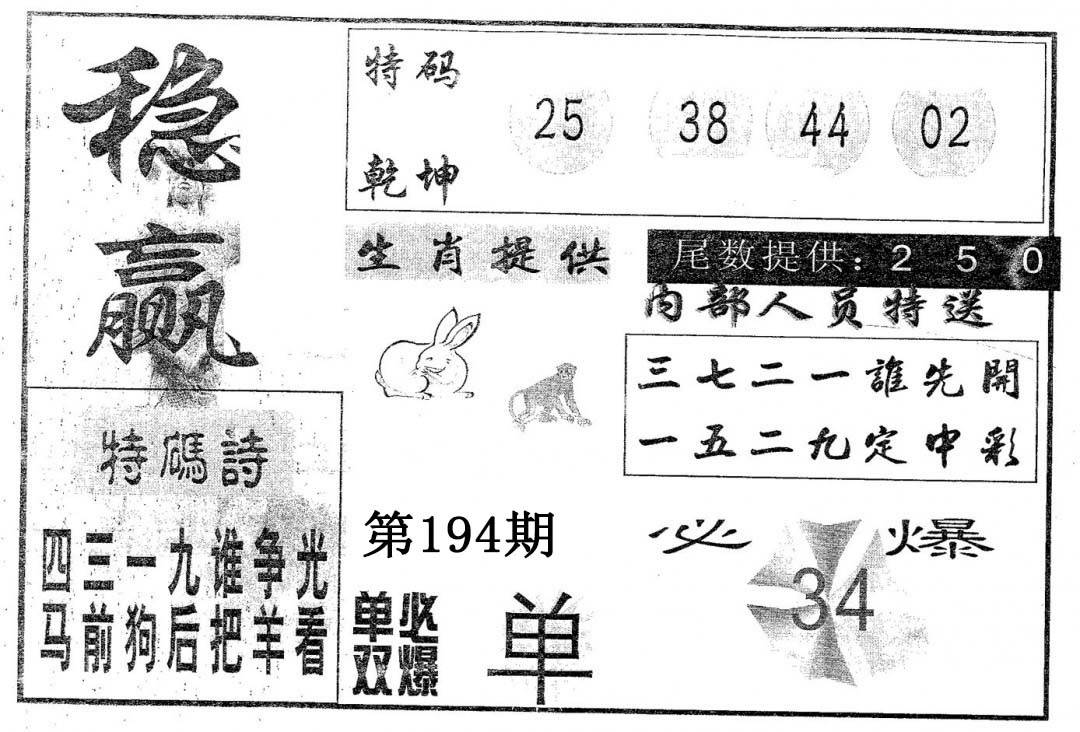 稳赢
特码
乾坤
25 38 44 02
生肖提供
尾数提供：2 5 0
内部人员特送
三七二一誰先開
一五二九定中彩
特碼詩
四三一九谁争光
马前狗后把羊看
第194期
单双必爆
单
必爆
34